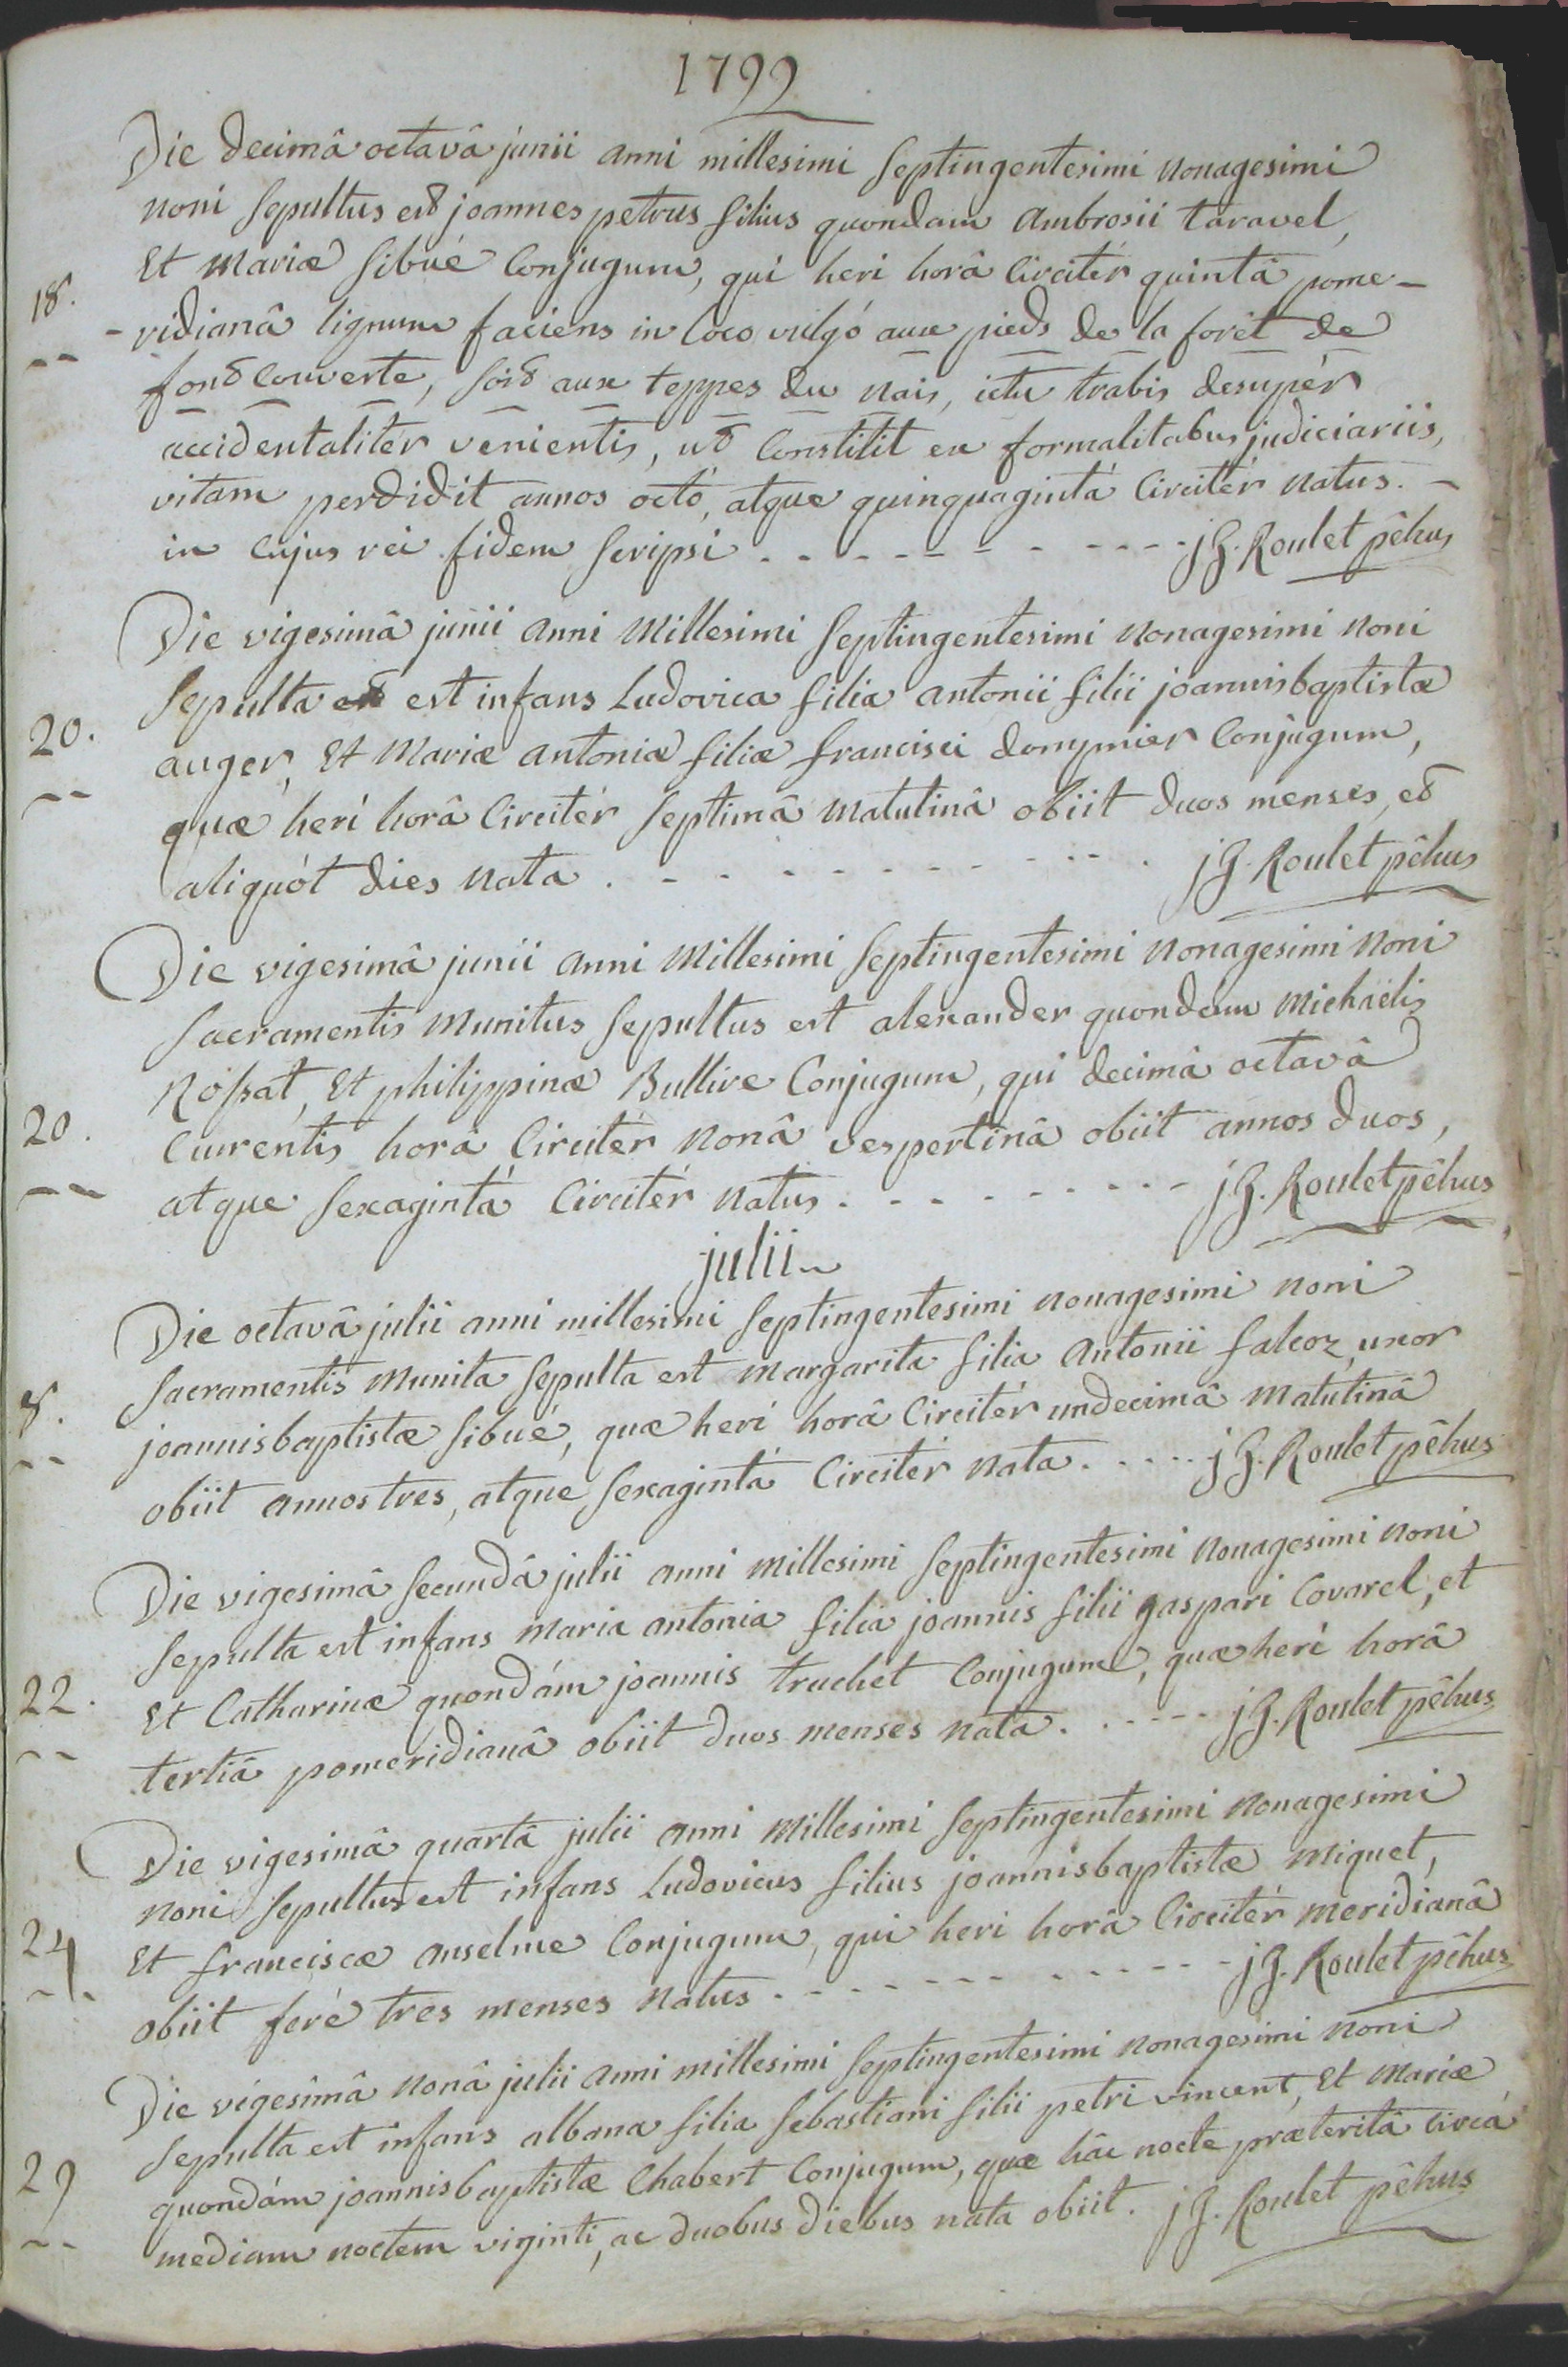 1799
Die decimâ octavâ junii anni millesimi septingentesimi nonagesimi
noni sepultus est joannes petrus filius quondam ambrosii taravel,
Et mariæ sibué conjugum, qui heri horâ circitér quintâ pome-
18.
-ridianâ lignum faciens in loco vulgó aux pieds de la forêt de
font couverte, soit aux teppes du nais, ictu trabis desupér
accidentalitér venientis, ut constitit ex formalitabus judiciariis,
vitam perdidit annos octó, atque quinquagintá circitér natus. -
in cujus rei fidem scripsi . - - - - - - - - - - j J. Roulet pêhus
Die vigesimâ junii anni millesimi septingentesimi nonagesimi noni
sepulta est infans Ludovica filia antonii filii joannisbaptistæ
20.
auger, Et mariæ antoniæ filiæ francisci dompnier conjugum,
quæ heri horâ circitér septimâ matutinâ obiit duos menses, et
aliquót dies nata . - - - - - - - - - . j J. Roulet pêhus
Die vigesimâ junii anni millesimi septingentesimi nonagesimi noni
sacramentis munitus sepultus est alexander quondam michaëlis
Rossat, Et philippinæ Bullire conjugum, qui decimâ octavâ
20.
currentis horâ circitér nonâ vespertinâ obiit annos duos,
atque sexagintá circitér natus . - - - - - - - - j J. Roulet pêhus
julii
Die octavâ julii anni millesimi septingentesimi nonagesimi noni
sacramentis munita sepulta est margarita filia antonii falcoz, uxor
8.
joannisbaptistæ sibué, quæ heri horâ circitér undecimâ matutinâ
obiit annos tres, atque sexagintá circitér nata. - - - - j J. Roulet pêhus
Die vigesimâ secundâ julii anni millesimi septingentesimi nonagesimi noni
sepulta est infans maria antonia filia joannis filii gaspari Covarel, et
22.
Et Catharinæ quondám joannis truchet conjugum, quæ heri horâ
tertiâ pomeridianâ obiit duos menses nata. - - - - - j J. Roulet pêhus
Die vigesimâ quartâ julii anni millesimi septingentesimi nonagesimi
noni sepultus est infans Ludovicus filius joannisbaptistæ miquet,
24.
Et franciscæ anselme conjugum, qui heri horâ circitér meridianâ
obiit feré tres menses natus. - - - - - - - - - - - j J. Roulet pêhus
Die vigesimâ nonâ julii anni millesimi septingentesimi nonagesimi noni
sepulta est infans albana filia sebastiani filii petri vincent, Et mariæ
29
quondám joannisbaptistæ Chabert conjugum, quæ hâc nocte præteritâ circá
mediam noctem viginti, ac duobus diebus nata obiit. j J. Roulet pêhus